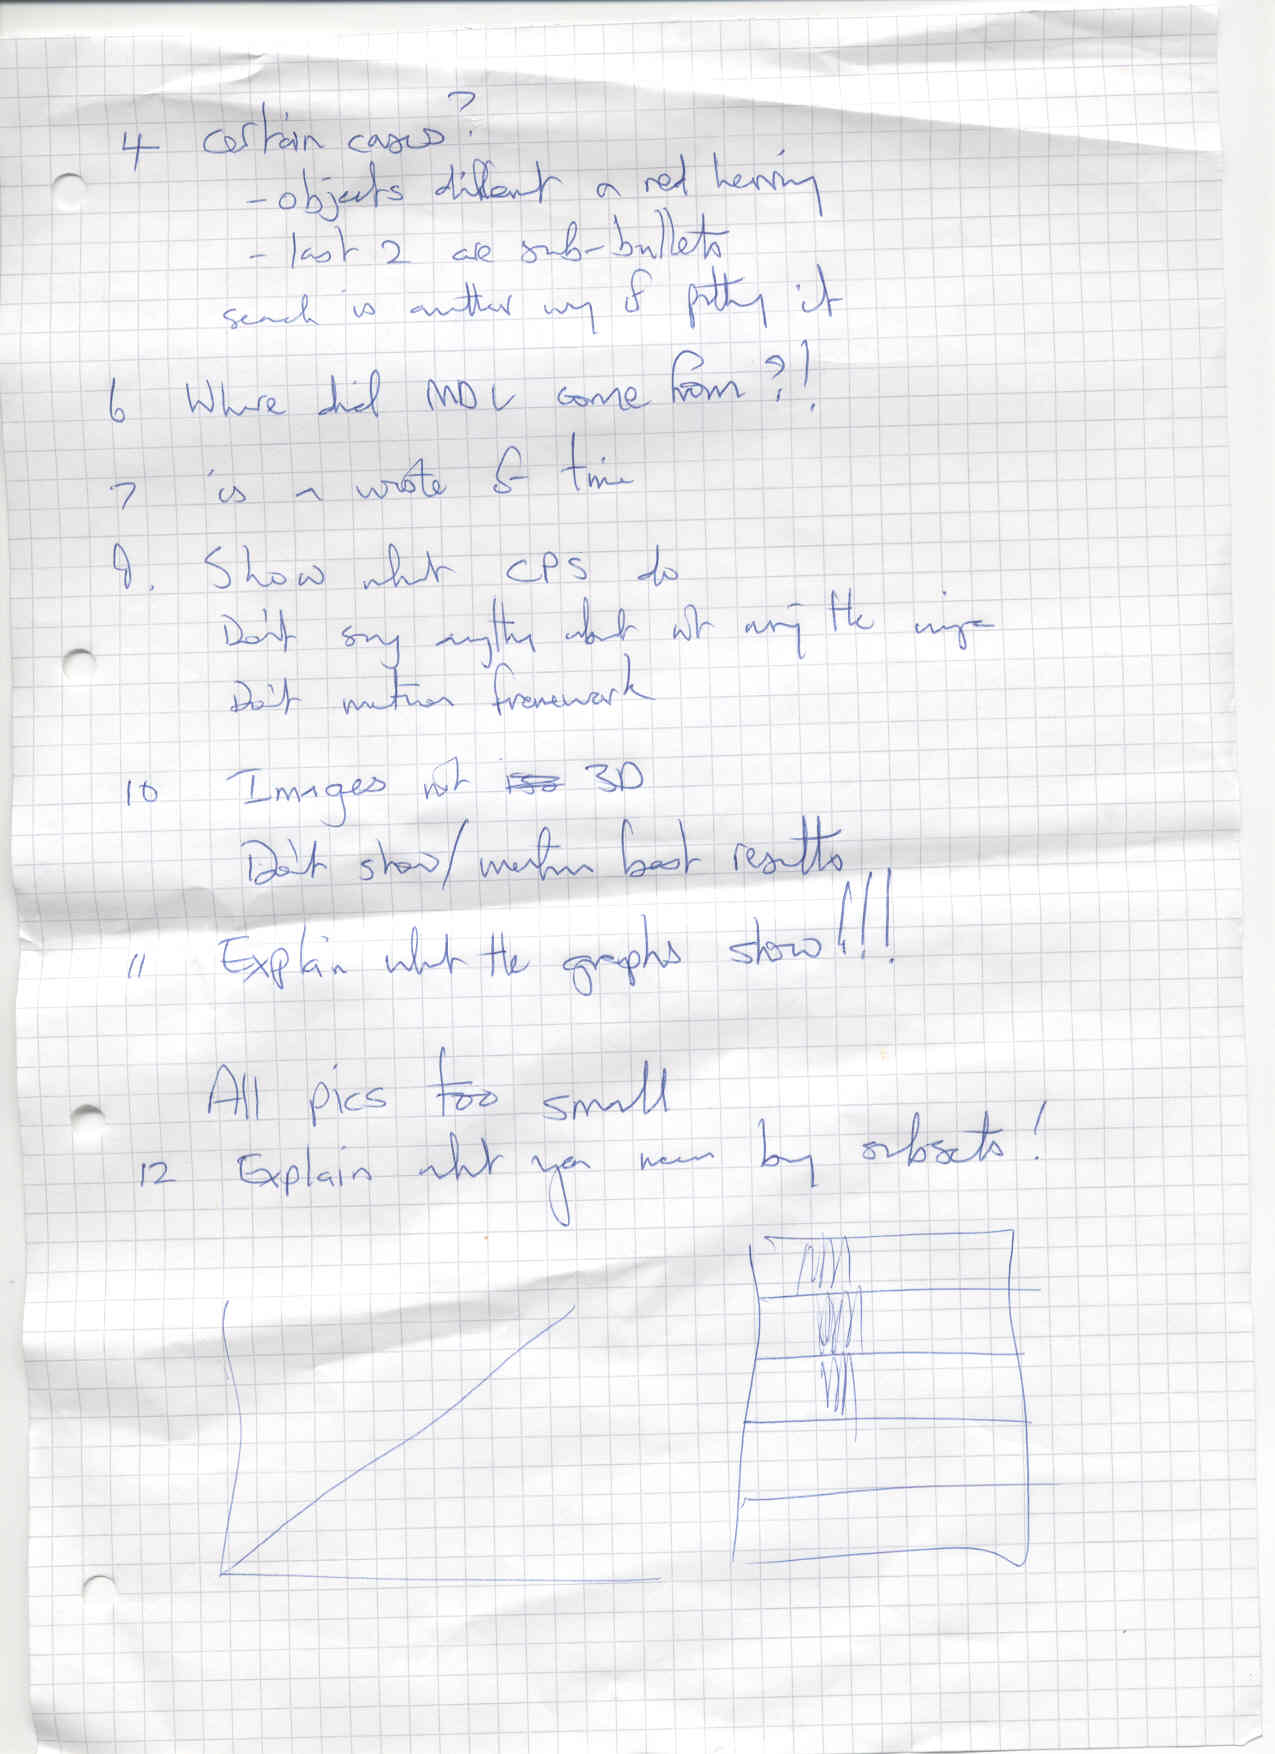 4 certain cases?
- objects different a red herring
- last 2 are sub-bullets
search is another way of putting it
6 Where did MDL come from?!
7 is a waste of time
8. Show what CPS do
Don't say anything about not the
Don't mention framework
10 Images not 3D
Don't show/mention best results
11 Explain what the graphs show!!!
All pics too small
12 Explain what you mean by subsets!